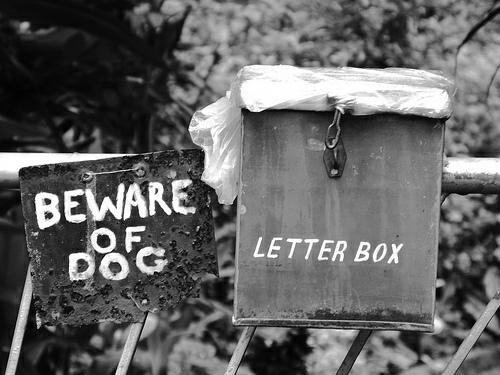 BEWARE
OF
DOG
LETTER BOX